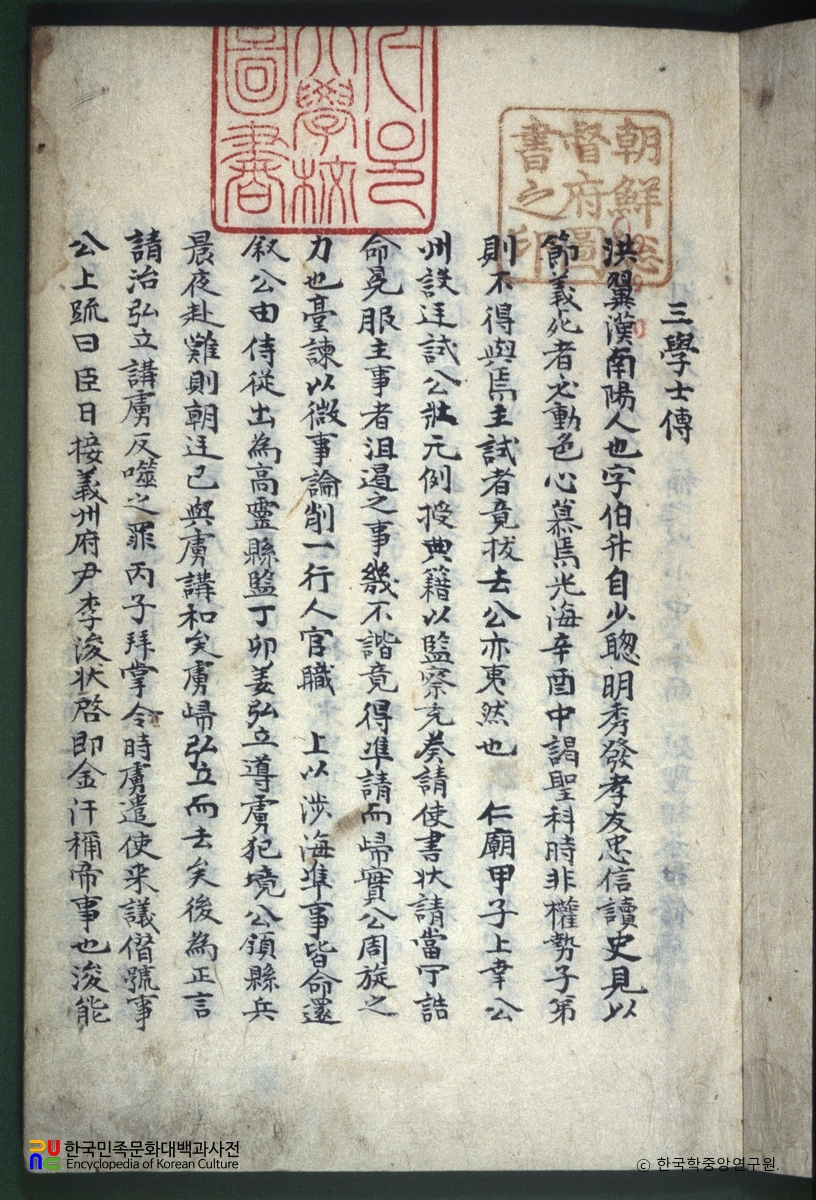 三學士傳
洪翼漢南陽人也字伯升自少聰明秀發孝友忠信讀史見以
節義死者必動色心慕焉光海辛酉中謁聖科時非權勢子第
則不得與焉主試者竟拔去公亦夷然也 仁廟甲子上幸公
州設廷試公壯元例授典籍以監察充奏請使書狀請當宁誥
命冕服主事者沮遏之事幾不諧竟得準請而歸實公周旋之
力也臺諫以微事論削一行人官職 上以涉海準事皆命還
叙公由侍從出為高靈縣監丁卯姜弘立導虜犯境公領縣兵
晨夜赴難則朝廷已與虜講和矣虜歸弘立而去矣後為正言
請治弘立講虜反噬之罪丙子拜掌令時虜遣使来議僭號事
公上疏曰臣日接義州府尹李浚狀啓即金汗稱帝事也浚能
朝鮮總
督府圖
書之印
大學校
圖書
한국민족문화대백과사전
Encyclopedia of Korean Culture
© 한국학중앙연구원.